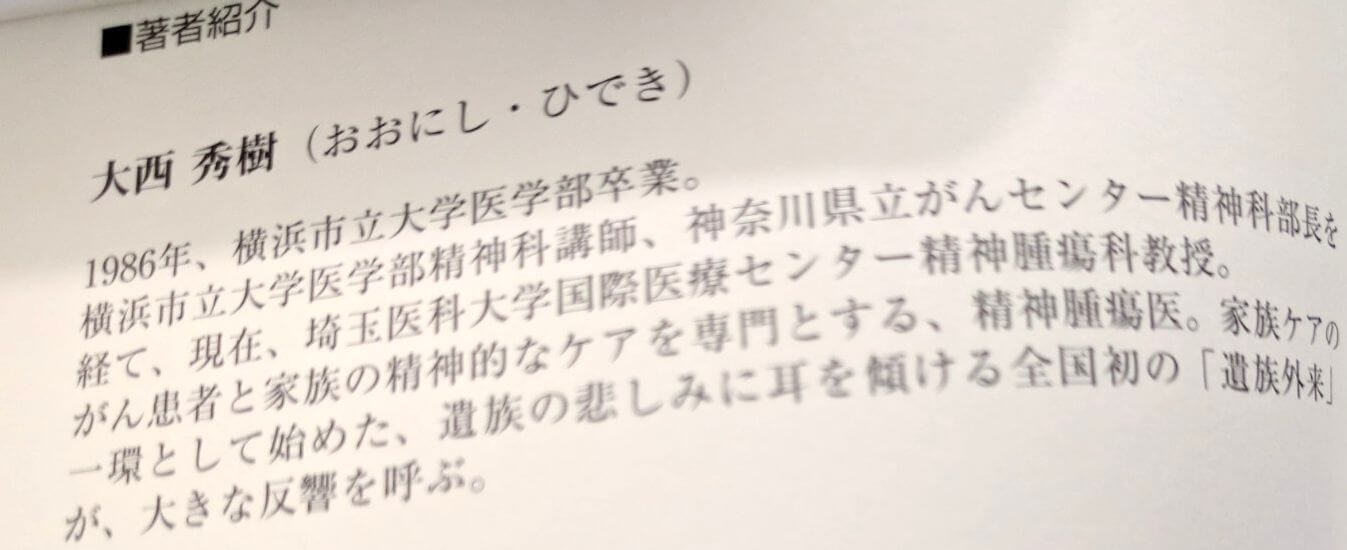 ■著者紹介
大西 秀樹（おおにし・ひでき）
1986年、横浜市立大学医学部卒業。
横浜市立大学医学部精神科講師、神奈川県立がんセンター精神科部長を
経て、現在、埼玉医科大学国際医療センター精神腫瘍科教授。
がん患者と家族の精神的なケアを専門とする、精神腫瘍医。家族ケアの
一環として始めた、遺族の悲しみに耳を傾ける全国初の「遺族外来」
が、大きな反響を呼ぶ。